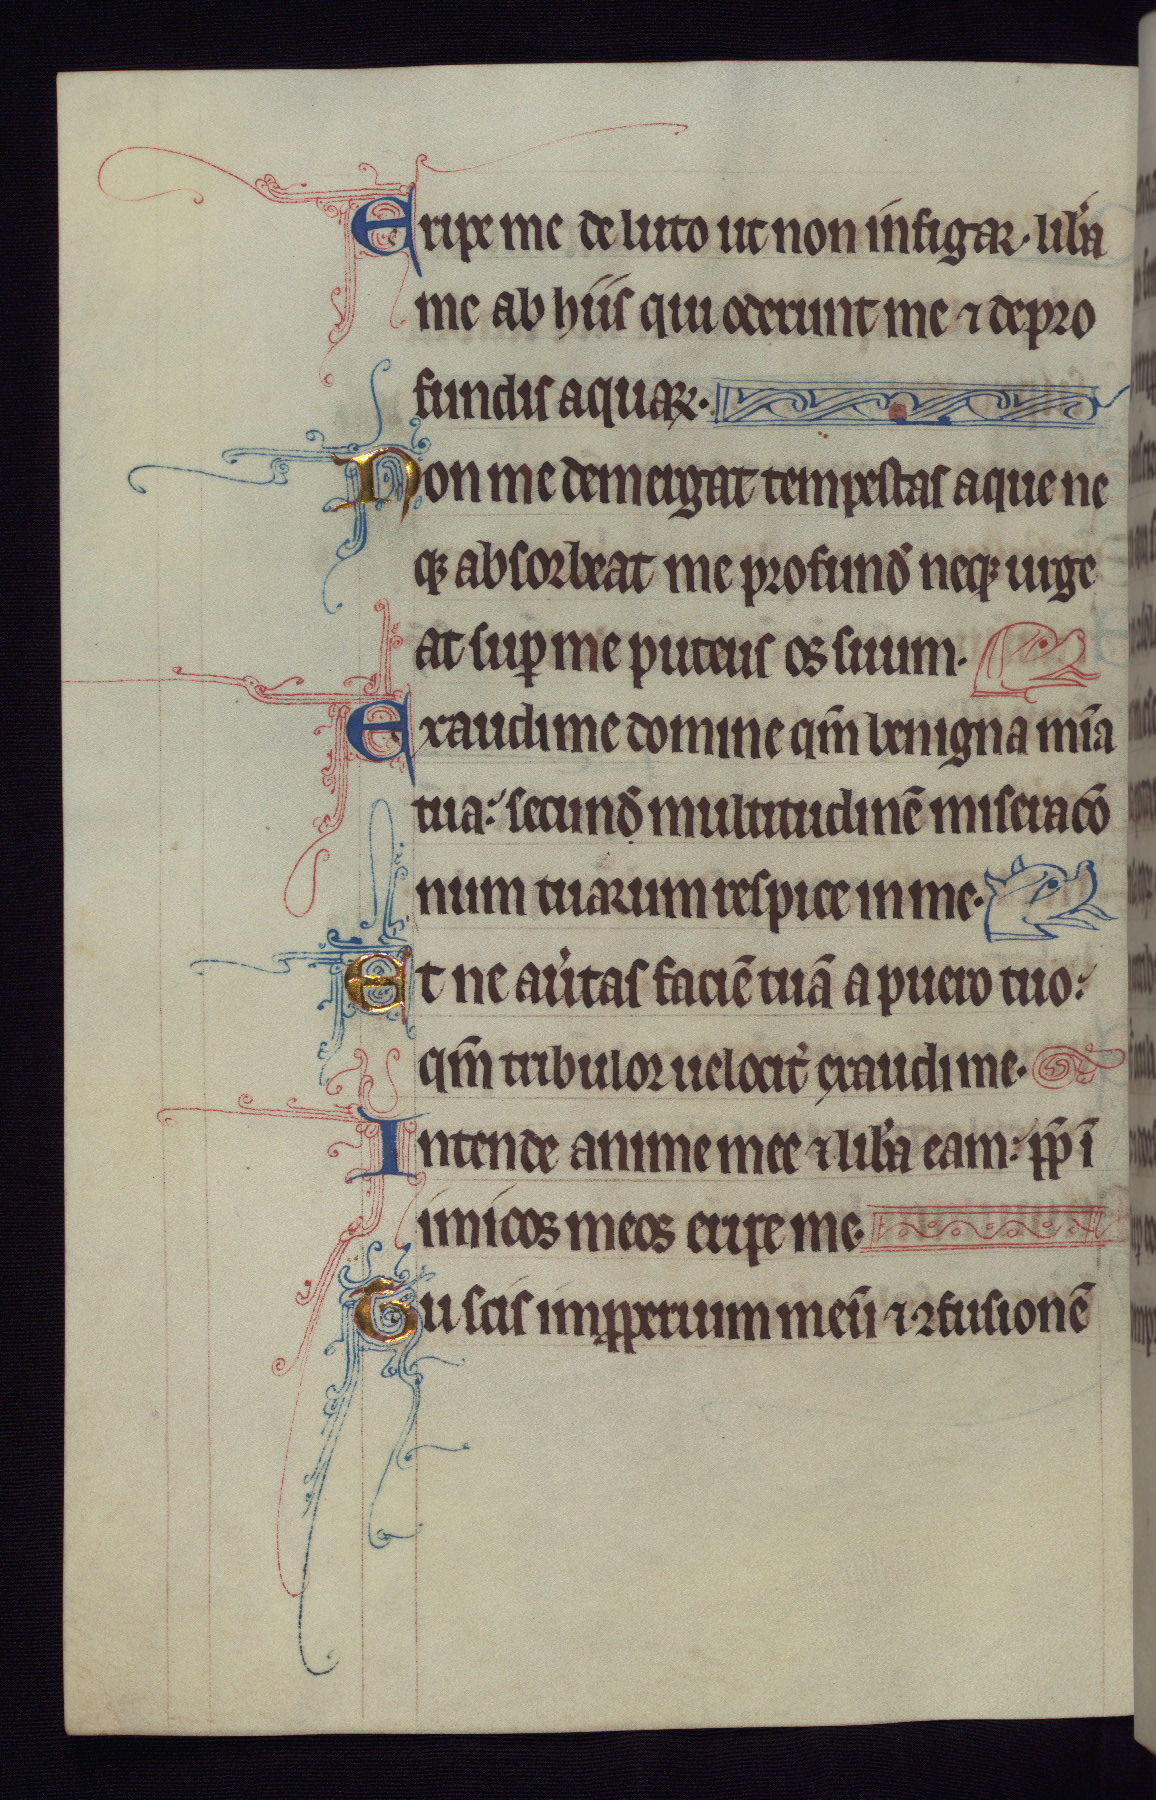 Eripe me de luto ut non infigar · lib̾a
me ab hiis qui oderunt me ⁊ de pro
fundis aquaꝝ·
Non me demergat tempestas aque ne
qꝫ absorbeat me profund̾ neqꝫ urge
at sup̱ me puteus os suum·
Exaudi me domine qm̄ benigna mīa
tua : secund̾ multitudinē miseracō
num tuarum respice in me·
Et ne au̾tas faciē tuā a puero tuo :
qm̄ tribulor uelocit̾ exaudi me·
Intende anime mee ⁊ lib̾a eam : pp̄ ī
imicos meos eripe me·
Tu scis imꝓperium meū ⁊ ꝯfusionē